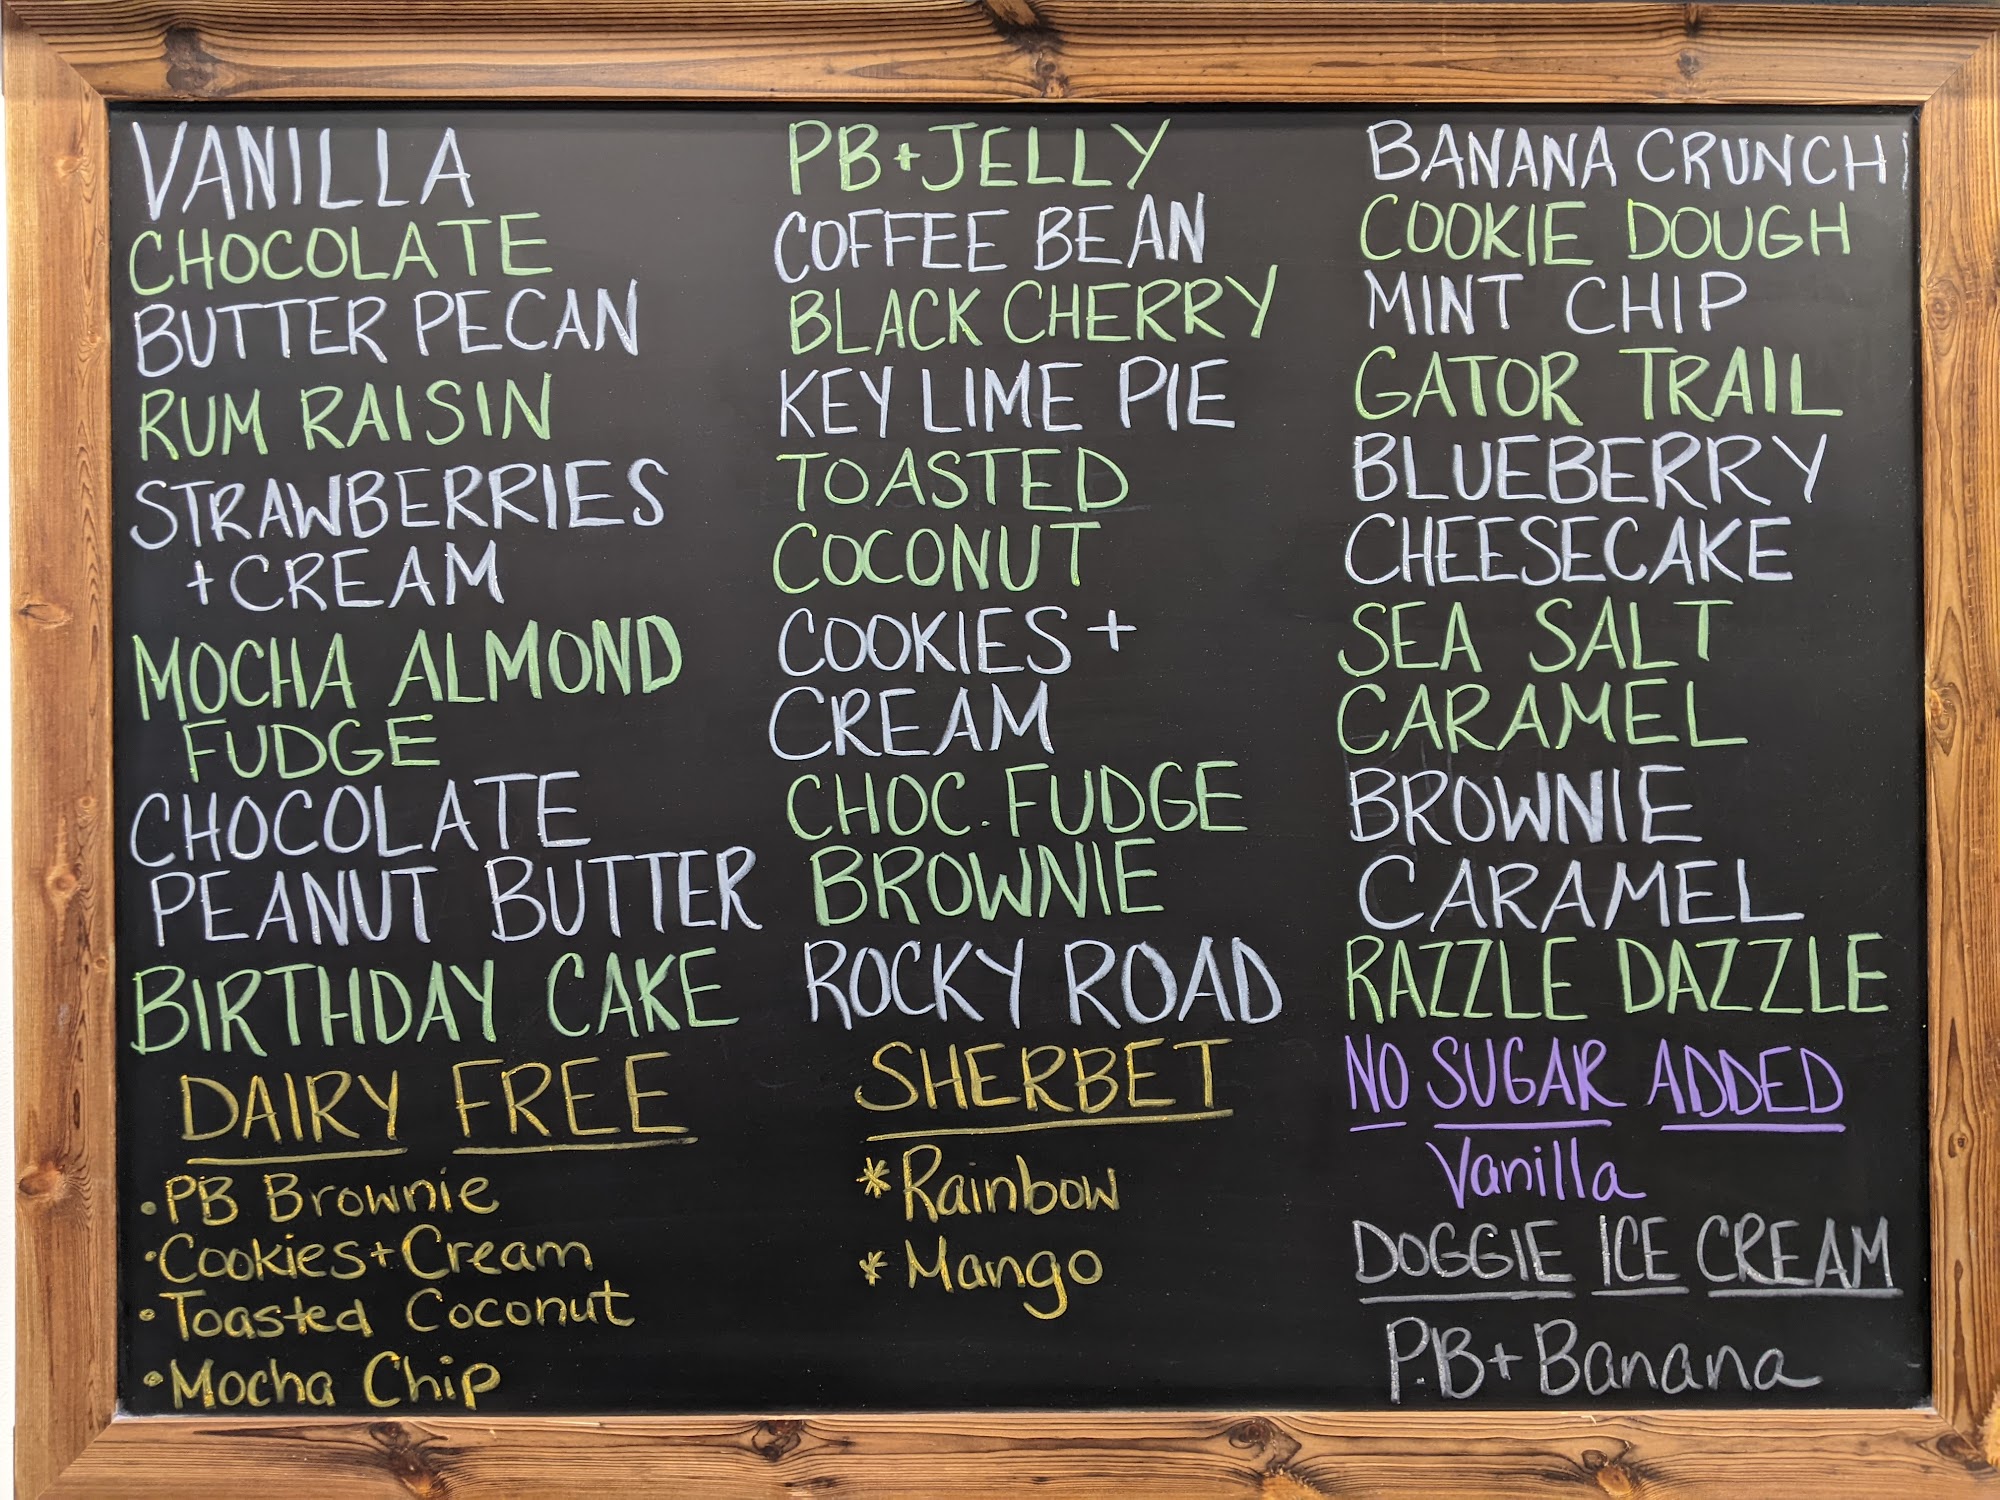 VANILLA
CHOCOLATE
BUTTER PECAN
RUM RAISIN
STRAWBERRIES
+ CREAM
MOCHA ALMOND
FUDGE
CHOCOLATE
PEANUT BUTTER
BIRTHDAY CAKE
DAIRY FREE
• PB Brownie
• Cookies + Cream
• Toasted Coconut
• Mocha Chip
PB + JELLY
COFFEE BEAN
BLACK CHERRY
KEY LIME PIE
TOASTED
COCONUT
COOKIES +
CREAM
CHOC. FUDGE
BROWNIE
ROCKY ROAD
SHERBET
* Rainbow
* Mango
BANANA CRUNCH
COOKIE DOUGH
MINT CHIP
GATOR TRAIL
BLUEBERRY
CHEESECAKE
SEA SALT
CARAMEL
BROWNIE
CARAMEL
RAZZLE DAZZLE
NO SUGAR ADDED
Vanilla
DOGGIE ICE CREAM
PB + Banana